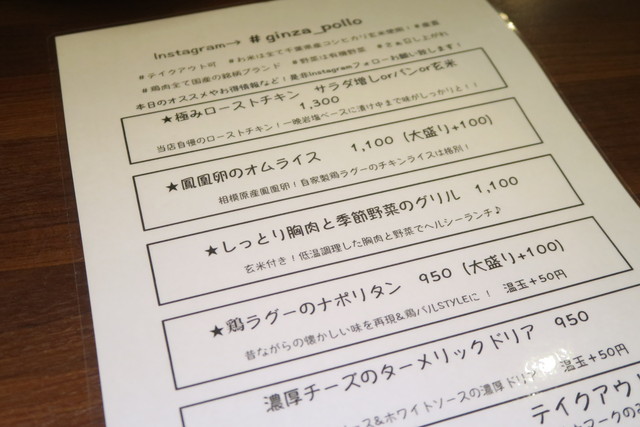 Instagram→ # ginza_pollo
#テイクアウト可 #お米は全て千葉県産コシヒカリ玄米使用!
#鶏肉全て国産の銘柄ブランド #野菜は有機野菜
本日のオススメやお得情報など!是非Instagramフォローお願い致します!
★極みローストチキン サラダ増しorパンor玄米
1,300
当店自慢のローストチキン!一晩岩塩ベースに漬け中まで味がしっかりと!!
★鳳凰卵のオムライス 1,100 (大盛り+100)
相模原産鳳凰卵!自家製鶏ラグーのチキンライスは格別!
★しっとり胸肉と季節野菜のグリル 1,100
玄米付き!低温調理した胸肉と野菜でヘルシーランチ♪
★鶏ラグーのナポリタン 950 (大盛り+100)
昔ながらの懐かしい味を再現&鶏バルSTYLEに! 温玉+50円
濃厚チーズのターメリックドリア 950
ース&ホワイトソースの濃厚ドリア 温玉+50円
テイクアウ